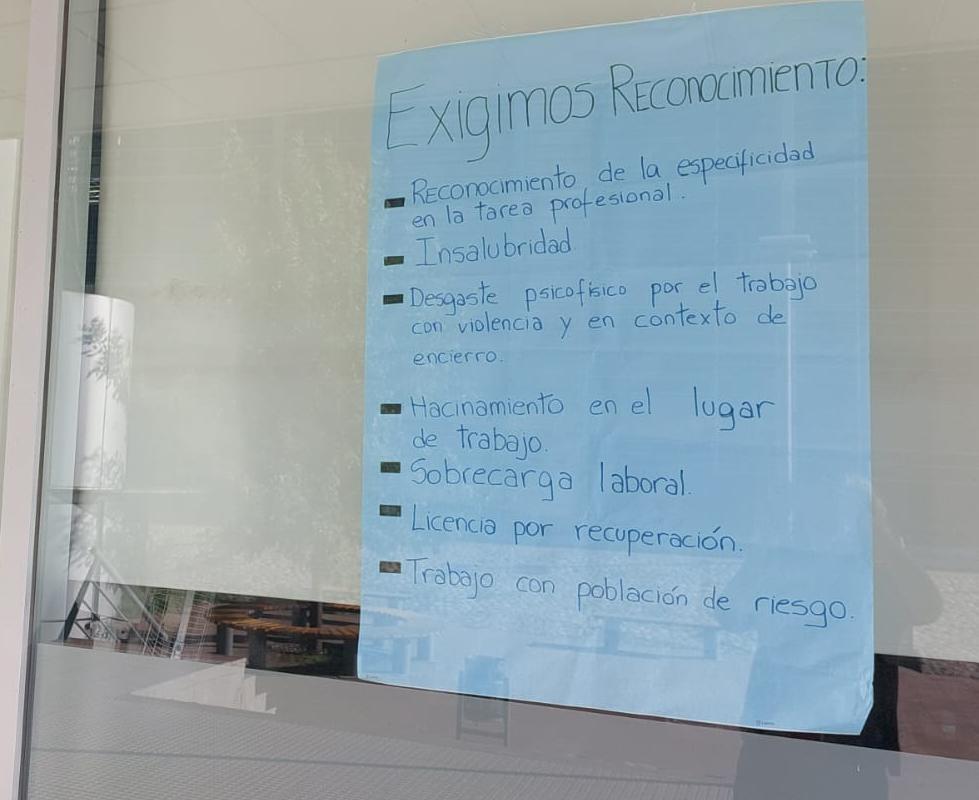 Exigimos Reconocimiento:
- Reconocimiento de la especificidad
en la tarea profesional.
- Insalubridad.
- Desgaste psicofísico por el trabajo
con violencia y en contexto de
encierro.
- Hacinamiento en el lugar
de trabajo.
- Sobrecarga laboral.
- Licencia por recuperación.
- Trabajo con población de riesgo.